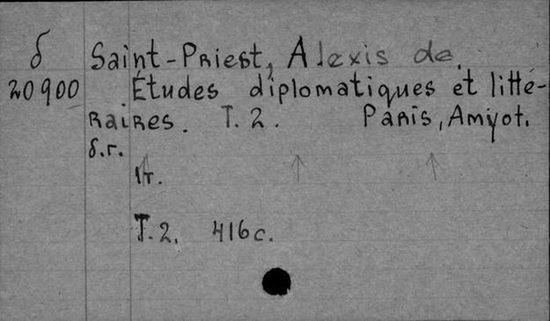 б Saint-Priest, Alexis de.
20900 Études diplomatiques et litté-
raires. T. 2. Paris, Amyot.
б.г.
1т.
T. 2. 416 с.